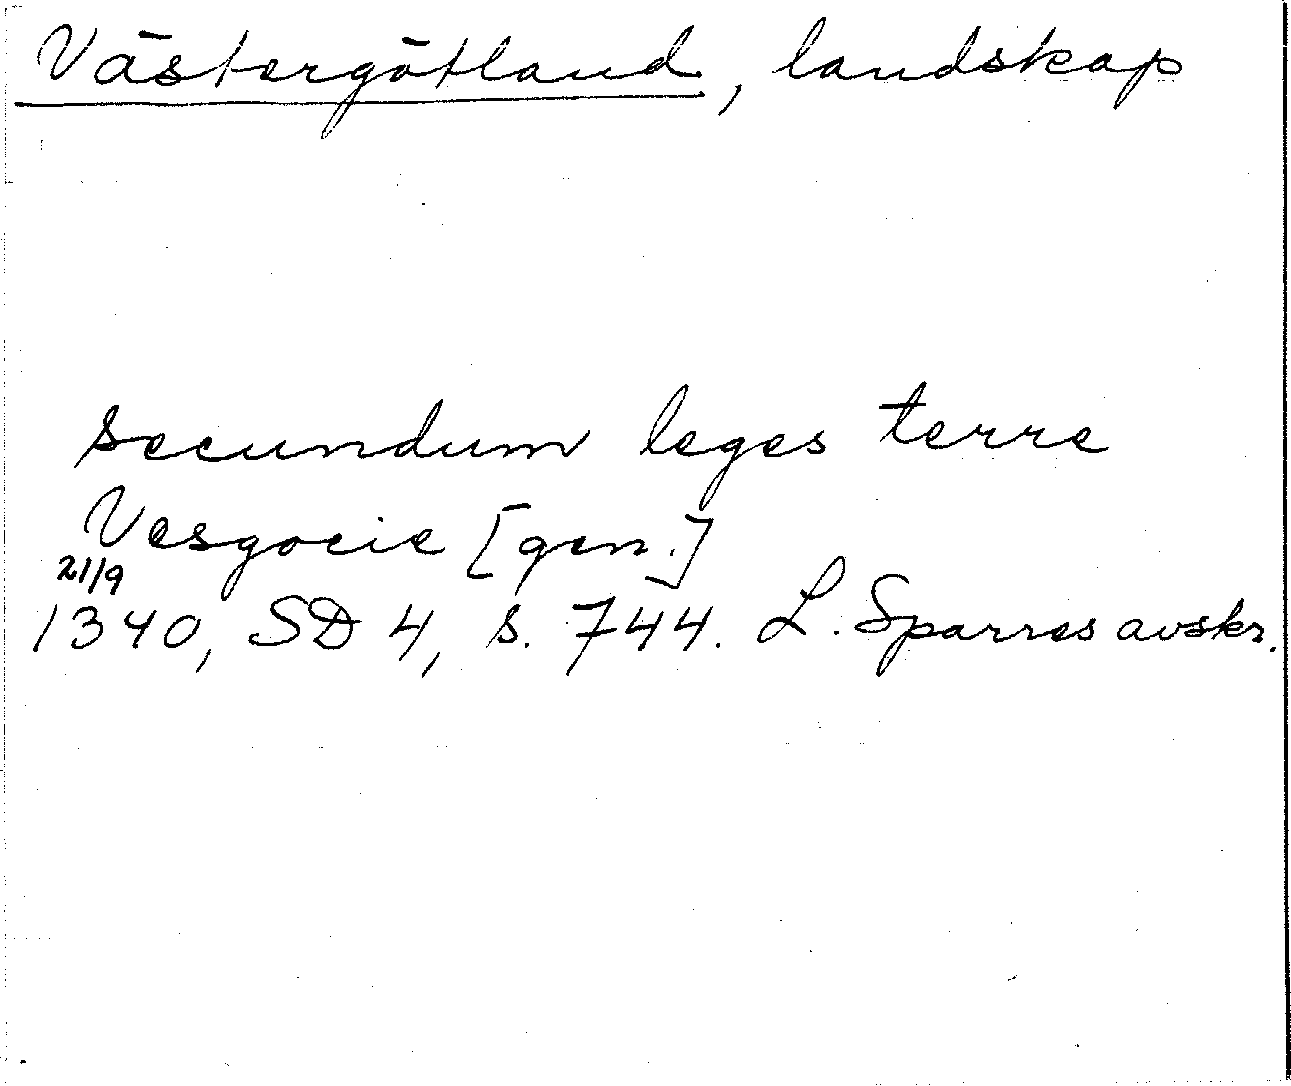 Västergötland, landskap
secundum leges terre
Vesgocie [gen.]
21/9
1340, SD 4, s. 744. L. Sparres avskr.